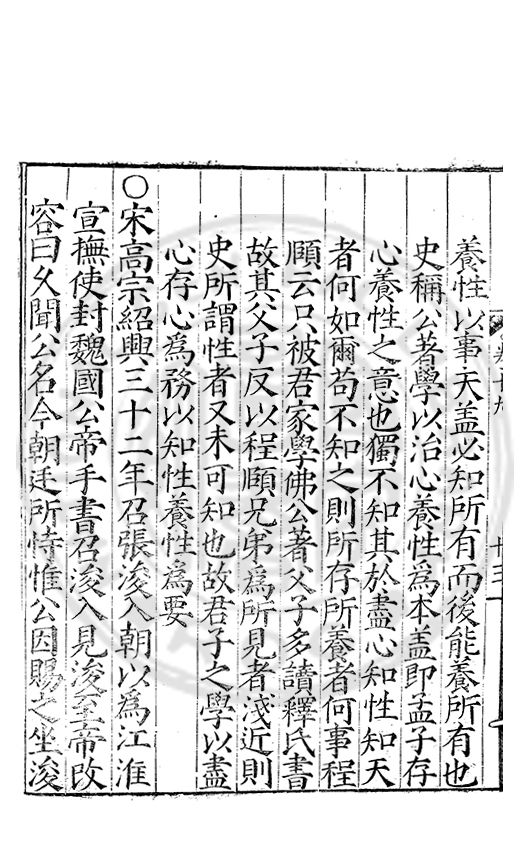 養性以事天盖必知所有而後能養所有也
史稱公著學以治心養性為本盖即孟子存
心養性之意也獨不知其於盡心知性知天
者何如爾苟不知之則所存所養者何事程
頤云只被君家學佛公著父子多讀釋氏書
故其父子反以程頤兄弟為所見者淺近則
史所謂性者又未可知也故君子之學以盡
心存心為務以知性養性為要
○宋高宗紹興三十二年召張浚入朝以為江淮
宣撫使封魏國公帝手書召浚入見浚至帝改
容曰久聞公名今朝廷所恃惟公因賜之坐浚